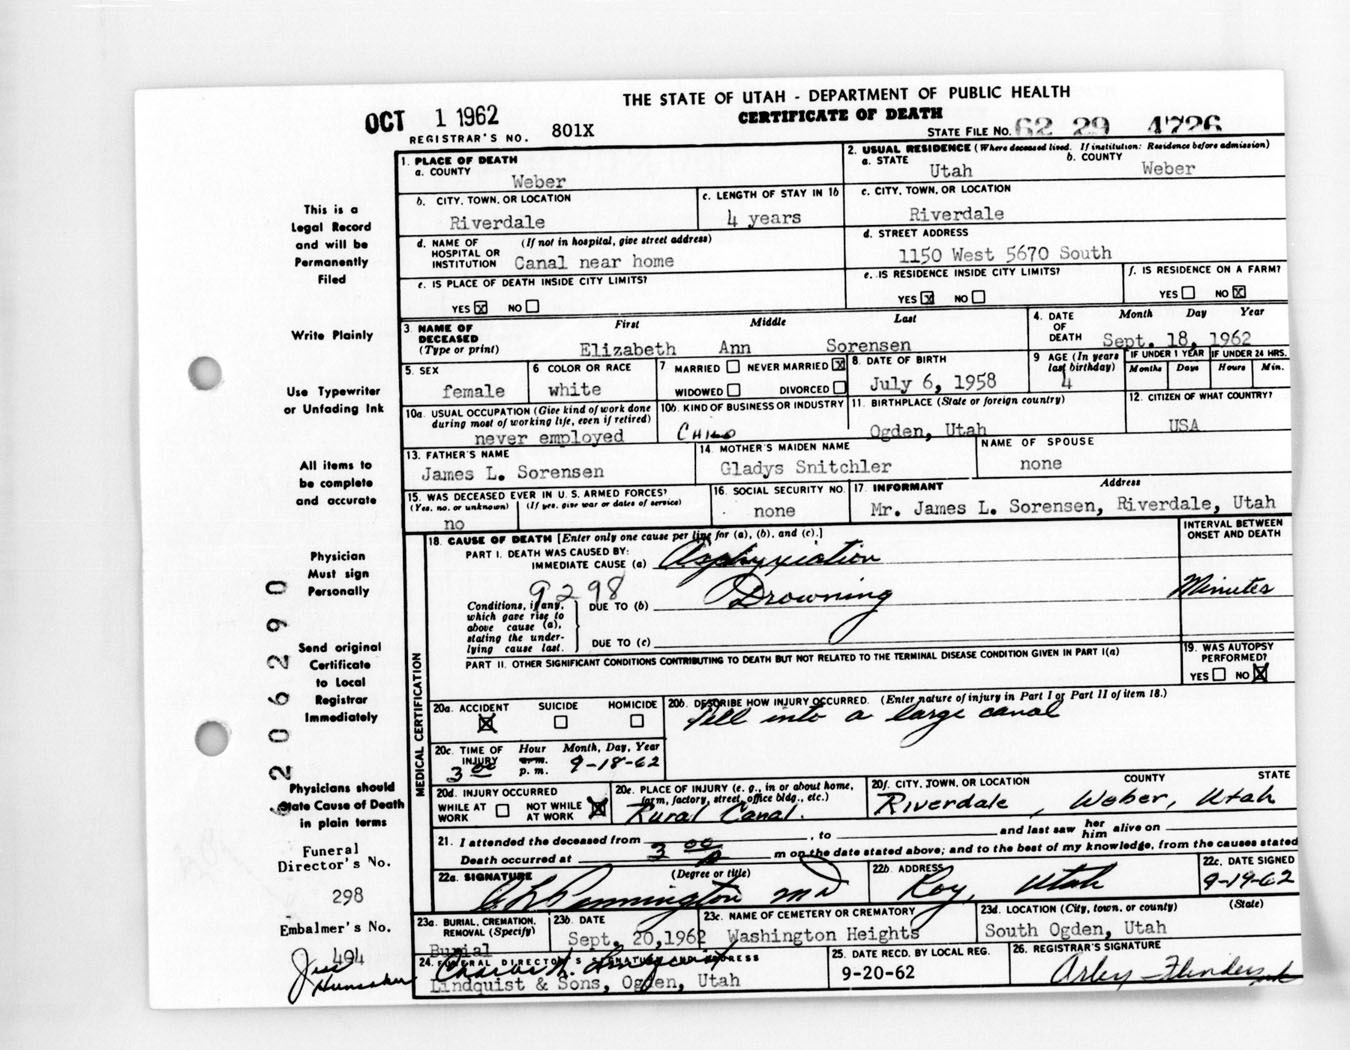 THE STATE OF UTAH - DEPARTMENT OF PUBLIC HEALTH
CERTIFICATE OF DEATH
OCT 1 1962
REGISTRAR'S NO. 801X
STATE FILE NO. 62 29 4726
1. PLACE OF DEATH
a. COUNTY
Weber
2. USUAL RESIDENCE (Where deceased lived. If institution: Residence before admission)
a. STATE Utah b. COUNTY Weber
b. CITY, TOWN, OR LOCATION
Riverdale
c. LENGTH OF STAY IN 1b
4 years
c. CITY, TOWN, OR LOCATION
Riverdale
d. NAME OF HOSPITAL OR INSTITUTION (If not in hospital, give street address)
Canal near home
d. STREET ADDRESS
1150 West 5670 South
e. IS PLACE OF DEATH INSIDE CITY LIMITS?
YES X NO
e. IS RESIDENCE INSIDE CITY LIMITS?
YES X NO
f. IS RESIDENCE ON A FARM?
YES NO X
3. NAME OF DECEASED (Type or print)
First Middle Last
Elizabeth Ann Sorensen
4. DATE OF DEATH Month Day Year
Sept. 18, 1962
5. SEX
female
6 COLOR OR RACE
white
7 MARRIED NEVER MARRIED X
WIDOWED DIVORCED
8. DATE OF BIRTH
July 6, 1958
9 AGE (In years last birthday)
4
IF UNDER 1 YEAR
Months Days
IF UNDER 24 HRS.
Hours Min.
10a. USUAL OCCUPATION (Give kind of work done during most of working life, even if retired)
never employed
10b. KIND OF BUSINESS OR INDUSTRY
CHILD
11. BIRTHPLACE (State or foreign country)
Ogden, Utah
12. CITIZEN OF WHAT COUNTRY?
USA
13. FATHER'S NAME
James L. Sorensen
14. MOTHER'S MAIDEN NAME
Gladys Snitchler
NAME OF SPOUSE
none
15. WAS DECEASED EVER IN U.S. ARMED FORCES?
(Yes, no, or unknown) (If yes, give war or dates of service)
no
16. SOCIAL SECURITY NO.
none
17. INFORMANT Address
Mr. James L. Sorensen, Riverdale, Utah
18. CAUSE OF DEATH [Enter only one cause per line for (a), (b), and (c).]
INTERVAL BETWEEN ONSET AND DEATH
PART I. DEATH WAS CAUSED BY:
IMMEDIATE CAUSE (a) Asphyxiation
9298
Conditions, if any, which gave rise to above cause (a), stating the underlying cause last.
DUE TO (b) Drowning Minutes
DUE TO (c)
PART II. OTHER SIGNIFICANT CONDITIONS CONTRIBUTING TO DEATH BUT NOT RELATED TO THE TERMINAL DISEASE CONDITION GIVEN IN PART I(a)
19. WAS AUTOPSY PERFORMED?
YES NO X
20a. ACCIDENT SUICIDE HOMICIDE
X
20b. DESCRIBE HOW INJURY OCCURRED. (Enter nature of injury in Part I or Part II of item 18.)
Fell into a large canal
20c. TIME OF INJURY Hour a.m. p.m. Month, Day, Year
3 00 9-18-62
20d. INJURY OCCURRED
WHILE AT WORK NOT WHILE AT WORK X
20e. PLACE OF INJURY (e. g., in or about home, farm, factory, street, office bldg., etc.)
Rural Canal.
20f. CITY, TOWN, OR LOCATION COUNTY STATE
Riverdale, Weber, Utah
21. I attended the deceased from , to and last saw her him alive on
Death occurred at 3 00 p m on the date stated above; and to the best of my knowledge, from the causes stated
22a. SIGNATURE (Degree or title)
MD
22b. ADDRESS
Roy, Utah
22c. DATE SIGNED
9-19-62
23a. BURIAL, CREMATION, REMOVAL (Specify)
Burial
23b. DATE
Sept. 20, 1962
23c. NAME OF CEMETERY OR CREMATORY
Washington Heights
23d. LOCATION (City, town, or county) (State)
South Ogden, Utah
24. FUNERAL DIRECTOR'S SIGNATURE AND ADDRESS
Charles N. Lindquist
Lindquist & Sons, Ogden, Utah
25. DATE RECD. BY LOCAL REG.
9-20-62
26. REGISTRAR'S SIGNATURE
Arley Flinders
MEDICAL CERTIFICATION
This is a
Legal Record
and will be
Permanently
Filed
Write Plainly
Use Typewriter
or Unfading Ink
All items to
be complete
and accurate
Physician
Must sign
Personally
Send original
Certificate
to Local
Registrar
Immediately
Physicians should
State Cause of Death
in plain terms
Funeral
Director's No.
298
Embalmer's No.
494
Hunsaker
6206290